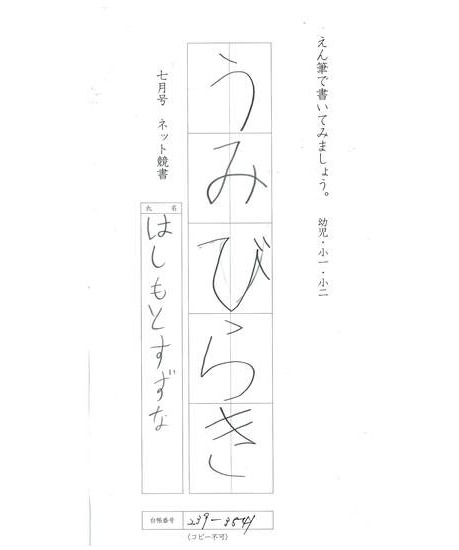 えん筆で書いてみましょう。 幼児・小一・小二
うみびらき
七月号 ネット競書
氏名
はしもとすずな
台帳番号 239-8541
(コピー不可)